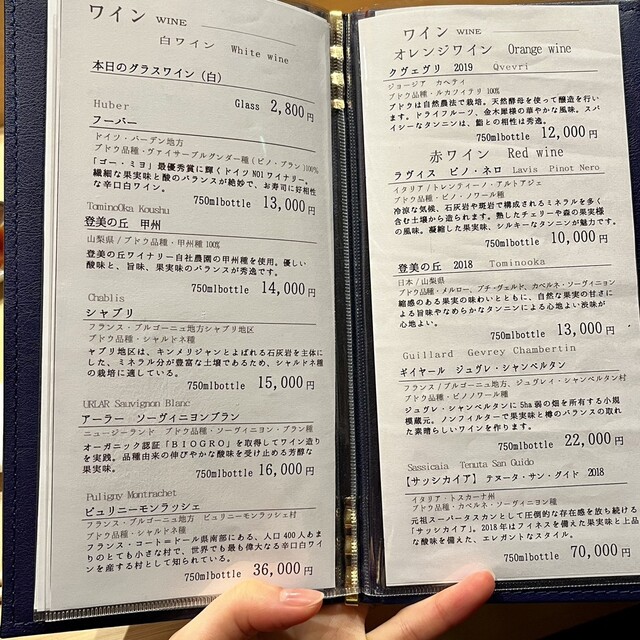 ワイン WINE
白ワイン White wine
本日のグラスワイン(白)
Glass 2,800円
Huber
フーバー
ドイツ・バーデン地方
ブドウ品種・ヴァイサーブルグンダー種(ピノ・ブラン)100%
「ゴー・ミヨ」最優秀賞に輝くドイツNO1ワイナリー。
繊細な果実味と酸のバランスが絶妙で、お寿司に好相性
な辛口白ワイン。
750mlbottle 13,000円
TominoOka Koushu
登美の丘 甲州
山梨県/ブドウ品種・甲州種100%
登美の丘ワイナリー自社農園の甲州種を使用。優しい
酸味と、旨味、果実味のバランスが秀逸です。
750mlbottle 14,000円
Chablis
シャブリ
フランス・ブルゴーニュ地方シャブリ地区
ブドウ品種・シャルドネ種
ャブリ地区は、キンメリジャンとよばれる石灰岩を主体に
した、ミネラル分が豊富な土壌であるため、シャルドネ種
の栽培に適している。
750mlbottle 15,000円
URLAR Sauvignon Blanc
アーラー ソーヴィニヨンブラン
ニュージーランド ブドウ品種・ソーヴィニヨン・ブラン種
オーガニック認証「BIOGRO」を取得してワイン造り
を実践。品種由来の伸びやかな酸味を受け止める芳醇な
果実味。
750mlbottle 16,000円
Puligny Montrachet
ピュリニーモンラッシェ
フランス・ブルゴーニュ地方 ピュリニーモンラッシェ村
ブドウ品種・シャルドネ種
フランス・コート=ドール県南部にある、人口400人あま
りのとても小さな村で、世界でも最も偉大なる辛口白ワイ
ンを産する村として知られている。
750mlbottle 36,000円
ワイン WINE
オレンジワイン Orange wine
クヴェヴリ 2019 Qvevri
ジョージア カヘティ
ブドウ品種・ルカツィテリ 100%
ブドウは自然農法で栽培。天然酵母を使って醸造を行い
ます。ドライフルーツ、金木犀様の華やかな風味。スパ
イシーなタンニンは、鮨との相性は秀逸。
750mlbottle 12,000円
赤ワイン Red wine
ラヴィス ピノ・ネロ Lavis Pinot Nero
イタリア/トレンティーノ・アルトアジェ
ブドウ品種・ピノ・ノワール種
冷涼な気候、石灰岩や斑岩で構成されるミネラルを多く
含む土壌から造られます。熟したチェリーや森の果実様
の風味。凝縮した果実味、シルキーなタンニンが魅力です。
750mlbottle 10,000円
登美の丘 2018 Tominooka
日本/山梨県
ブドウ品種・メルロー、プチ・ヴェルド、カベルネ・ソーヴィニョン
縮感のある果実の味わいとともに、自然な果実の甘さに
よる旨味やなめらかなタンニンによる心地よい渋味が
心地よい。
750mlbottle 13,000円
Guillard Gevrey Chambertin
ギイヤール ジュヴレ・シャンベルタン
フランス/ブルゴーニュ地方、ジュヴレイ・シャンベルタン村
ブドウ品種・ピノノワール種
ジュヴレ・シャンベルタンに5ha弱の畑を所有する小規
模蔵元。ノンフィルターで果実味と樽のバランスの取れ
た素晴らしいワインを作ります。
750mlbottle 22,000円
Sassicaia Tenuta San Guido
【サッシカイア】テヌータ・サン・グイド 2018
イタリア・トスカーナ州
ブドウ品種・カベルネ・ソーヴィニヨン種
元祖スーパータスカンとして圧倒的な存在感を放ち続ける
「サッシカイア」。2018年はフィネスを備えた果実味と上品
な酸味を備えた、エレガントなスタイル。
750mlbottle 70,000円